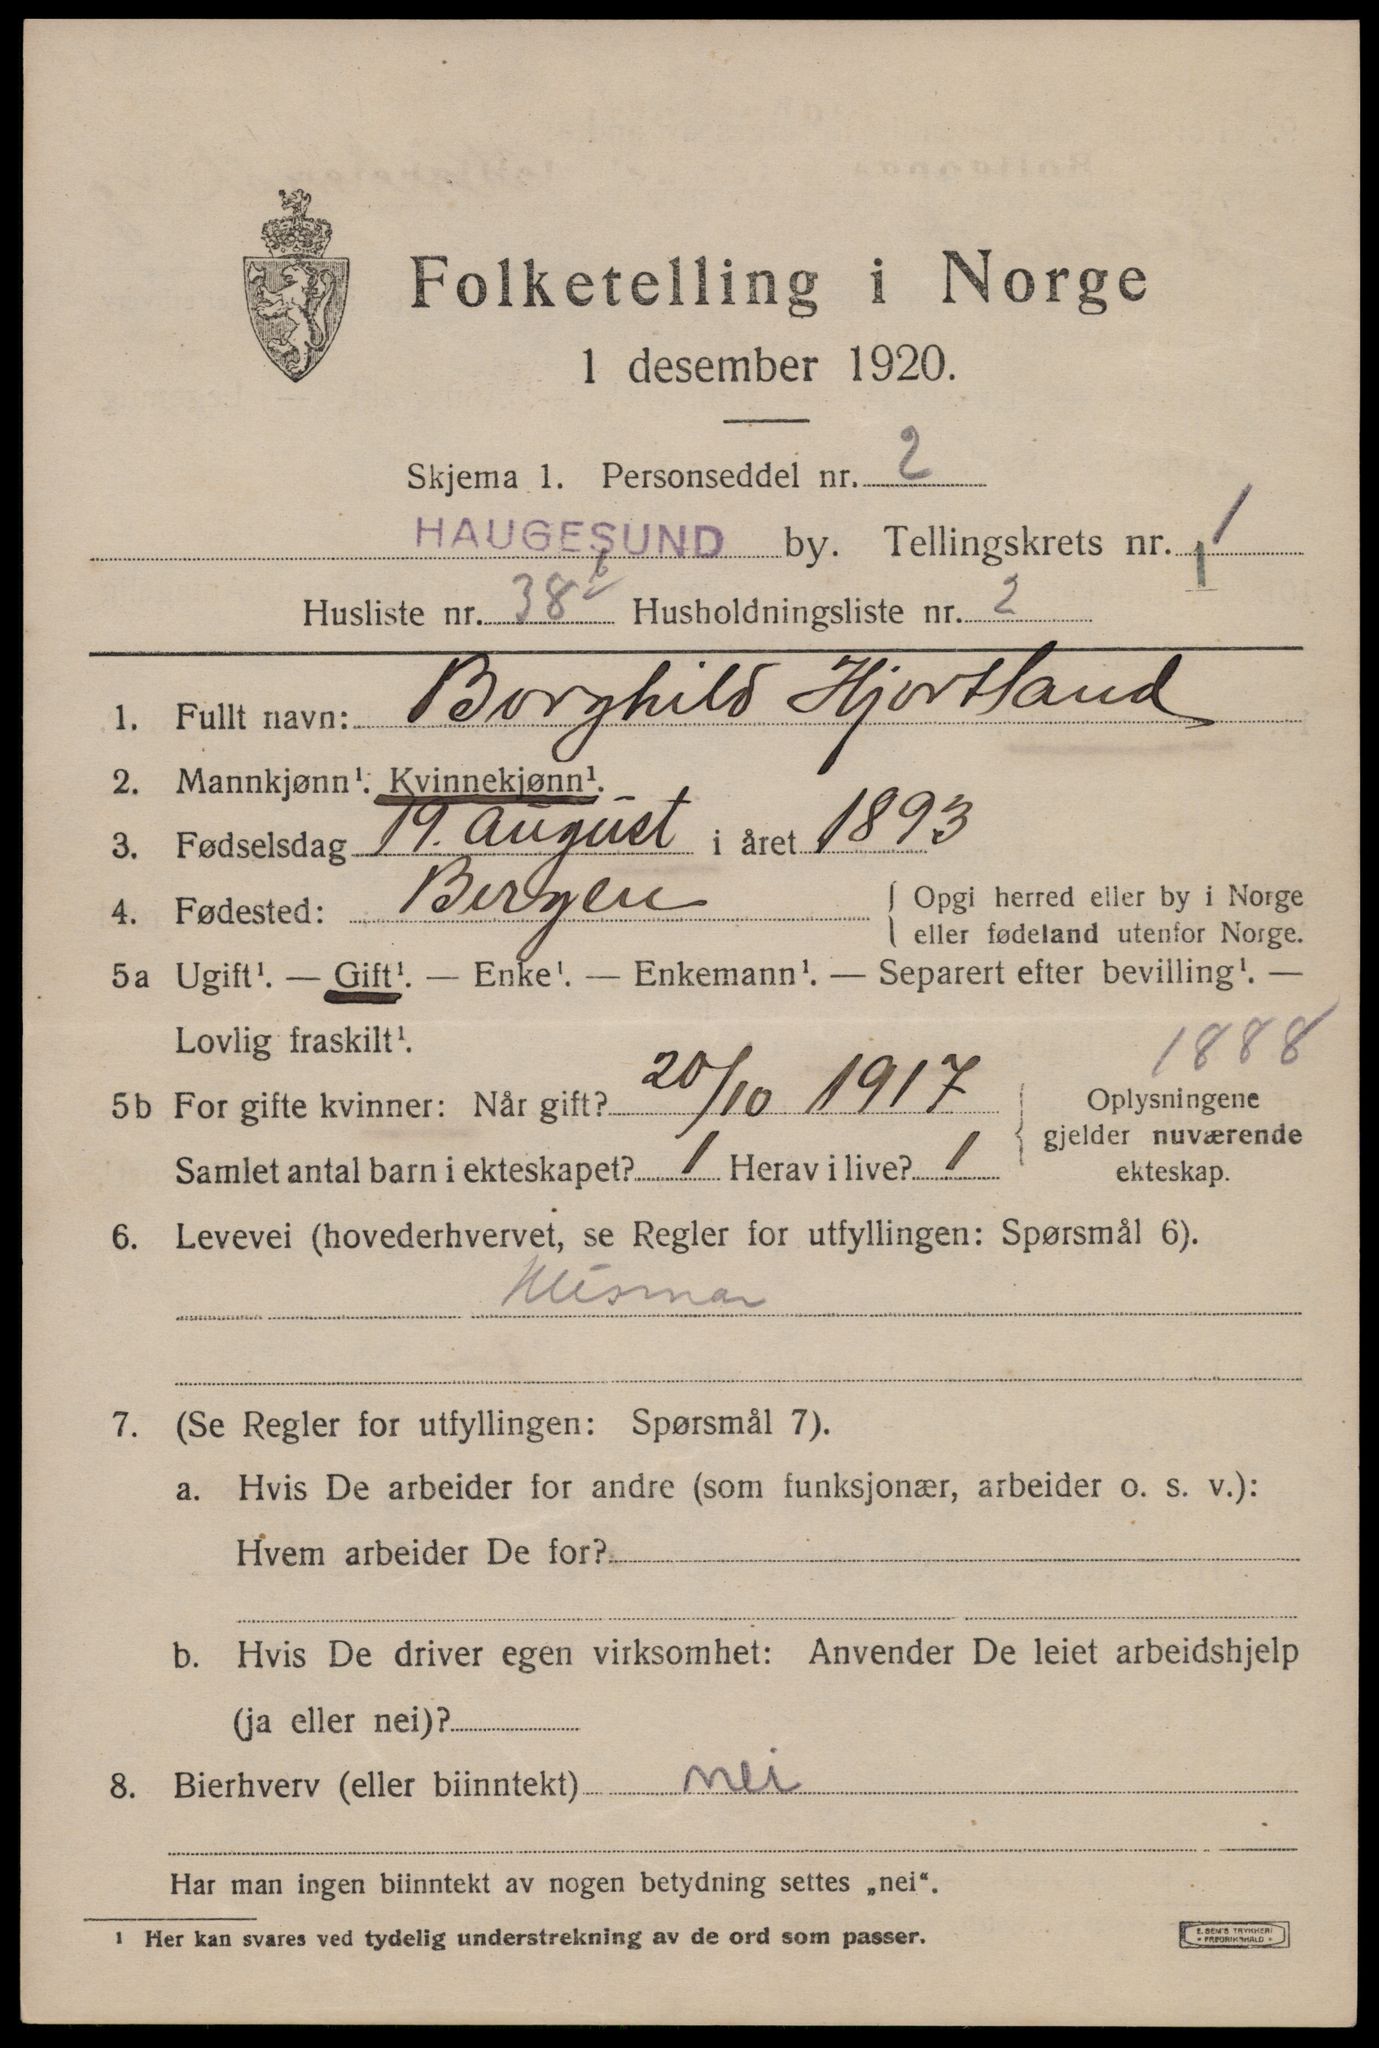 Folketelling i Norge
1 desember 1920.
Skjema 1. Personseddel nr. 2
HAUGESUND by. Tellingskrets nr. 1
1
Husliste nr. 38 b Husholdningsliste nr. 2
1. Fullt navn: Borghild Hjortland
2. Mannkjønn¹. Kvinnekjønn¹.
3. Fødselsdag 19. august i året 1893
4. Fødested: Bergen { Opgi herred eller by i Norge
eller fødeland utenfor Norge.
5a Ugift¹. — Gift¹. — Enke¹. — Enkemann¹. — Separert efter bevilling¹. —
Lovlig fraskilt¹.
1888
5b For gifte kvinner: Når gift? 20/10 1917 { Oplysningene
gjelder nuværende
Samlet antal barn i ekteskapet? 1 Herav i live? 1 ekteskap.
6. Levevei (hovederhvervet, se Regler for utfyllingen: Spørsmål 6).
7. (Se Regler for utfyllingen: Spørsmål 7).
a. Hvis De arbeider for andre (som funksjonær, arbeider o. s. v.):
Hvem arbeider De for?
b. Hvis De driver egen virksomhet: Anvender De leiet arbeidshjelp
(ja eller nei)?
8. Bierhverv (eller biinntekt) nei
Har man ingen biinntekt av nogen betydning settes „nei“.
¹ Her kan svares ved tydelig understrekning av de ord som passer.
E. SEM'S TRYKKERI
FREDRIKSHALD